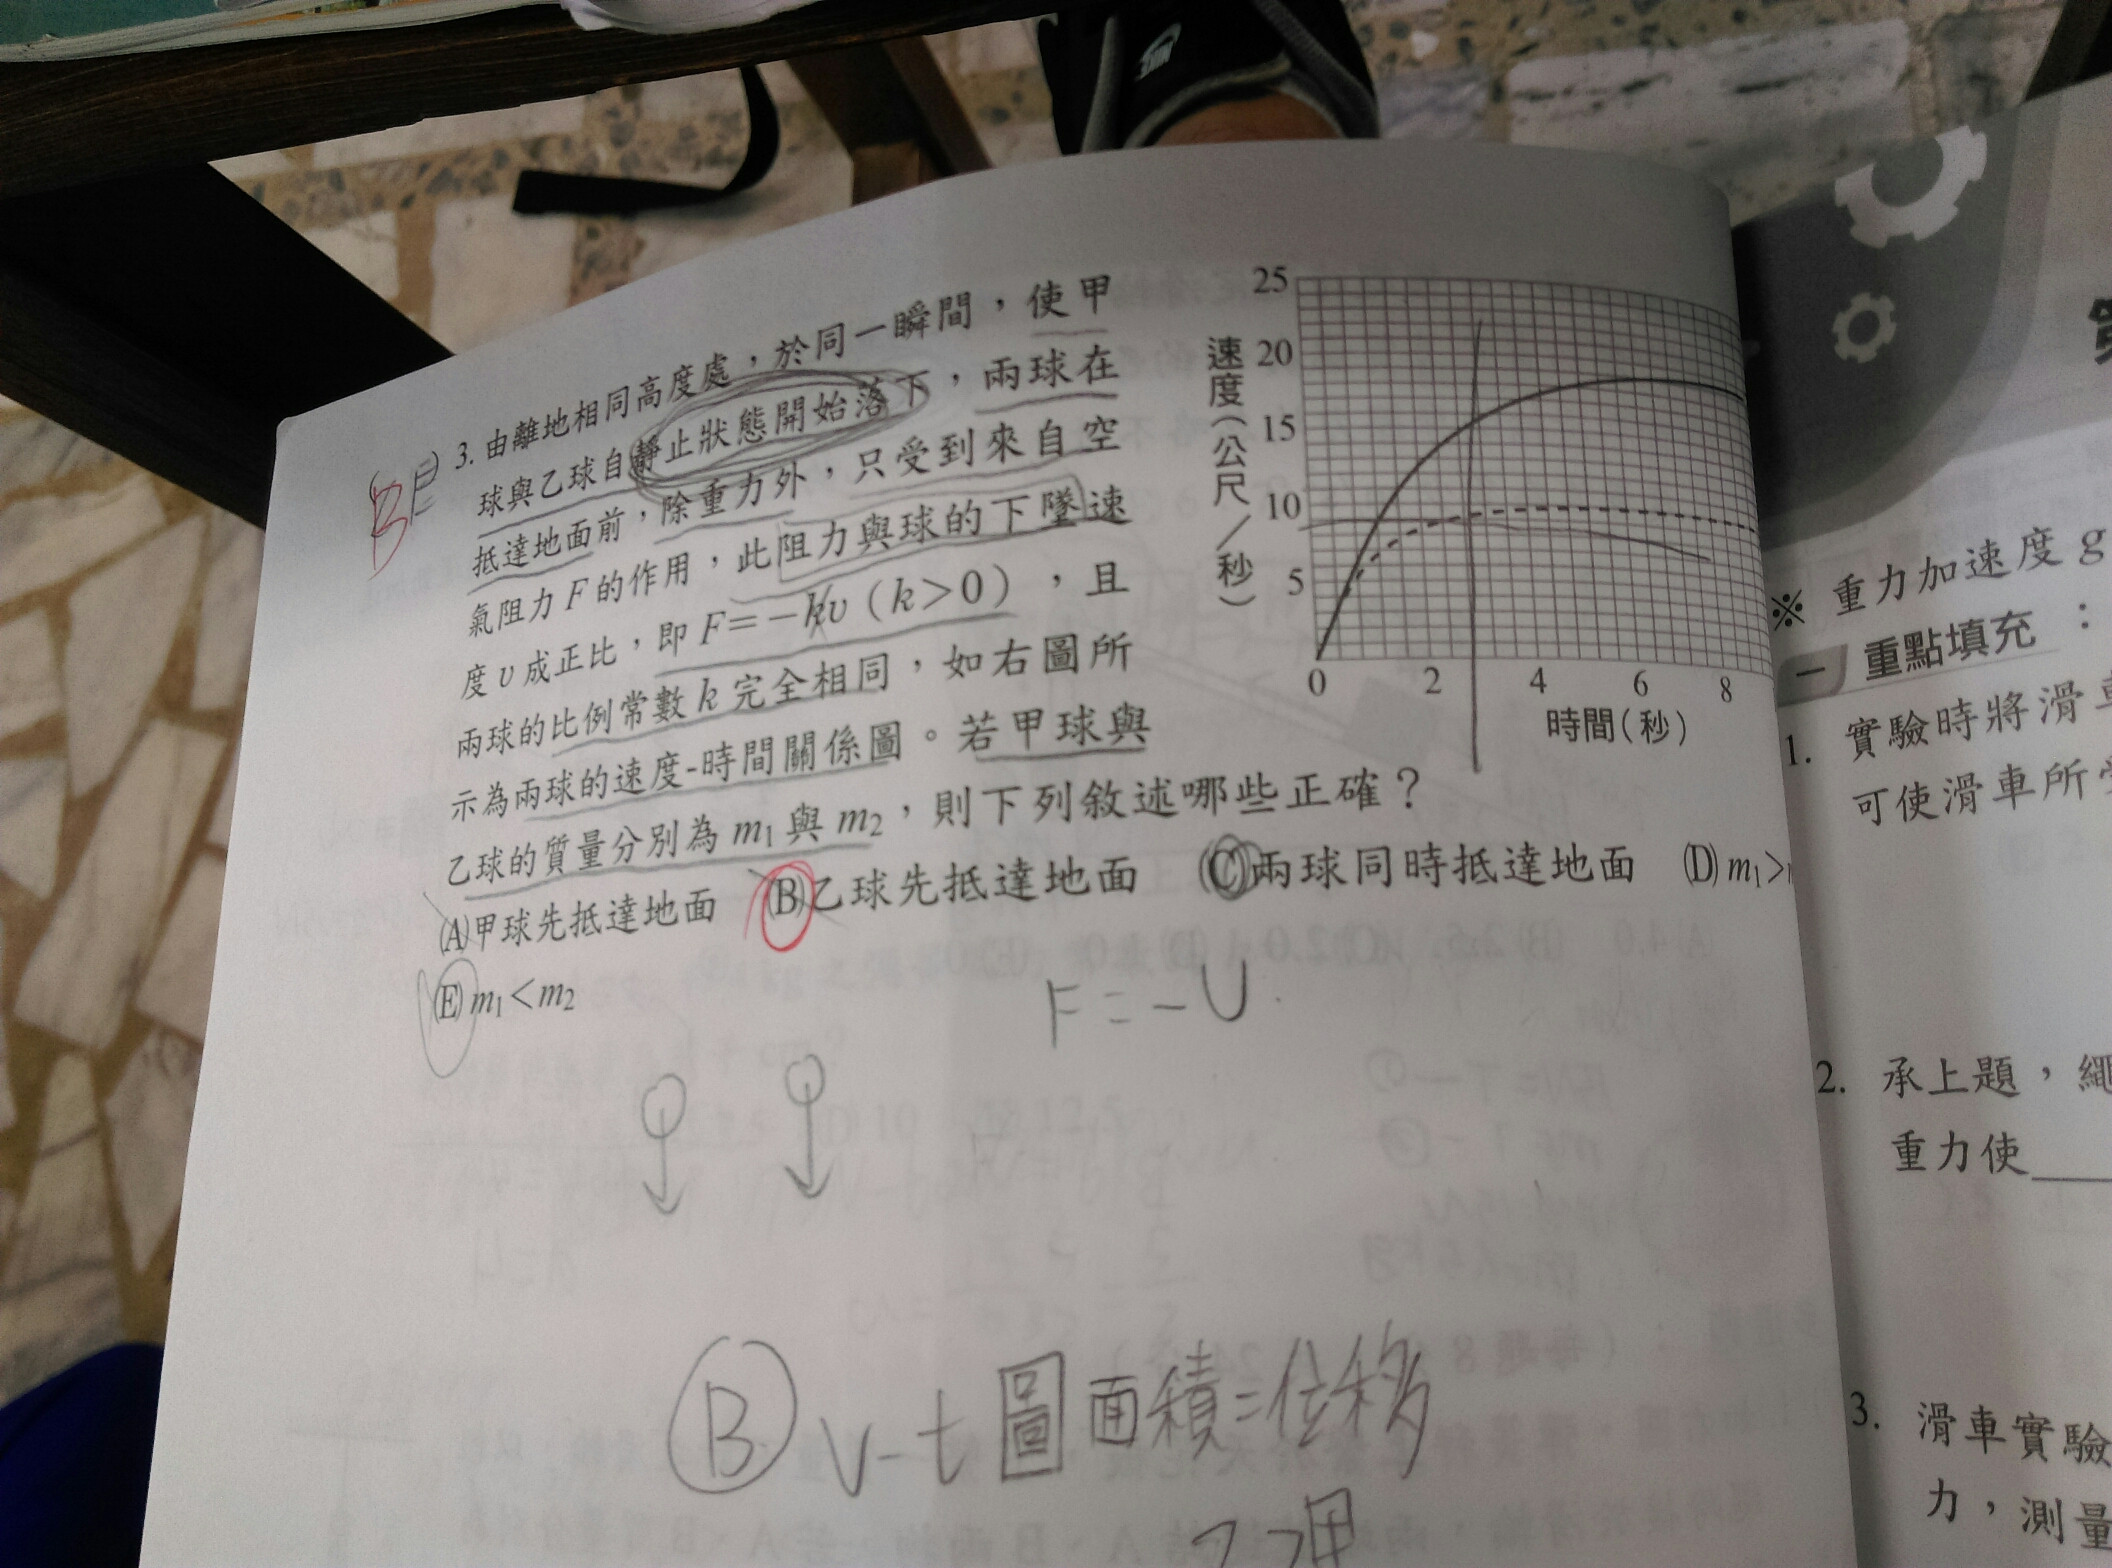 3. 由離地相同高度處，於同一瞬間，使甲
球與乙球自靜止狀態開始落下，兩球在
抵達地面前，除重力外，只受到來自空
氣阻力 F 的作用，此阻力與球的下墜速
度 υ 成正比，即 F=−kυ（k>0），且
兩球的比例常數 k 完全相同，如右圖所
示為兩球的速度-時間關係圖。若甲球與
乙球的質量分別為 m₁ 與 m₂，則下列敘述哪些正確？
(A)甲球先抵達地面 (B)乙球先抵達地面 (C)兩球同時抵達地面 (D) m₁>
(E) m₁<m₂
BE
B
速度(公尺/秒)
25
20
15
10
5
0 2 4 6 8
時間(秒)
F=−υ
B v-t圖面積=位移
乙>甲
※ 重力加速度 g
一 重點填充：
1. 實驗時將滑車
可使滑車所受
2. 承上題，繩
重力使
3. 滑車實驗
力，測量